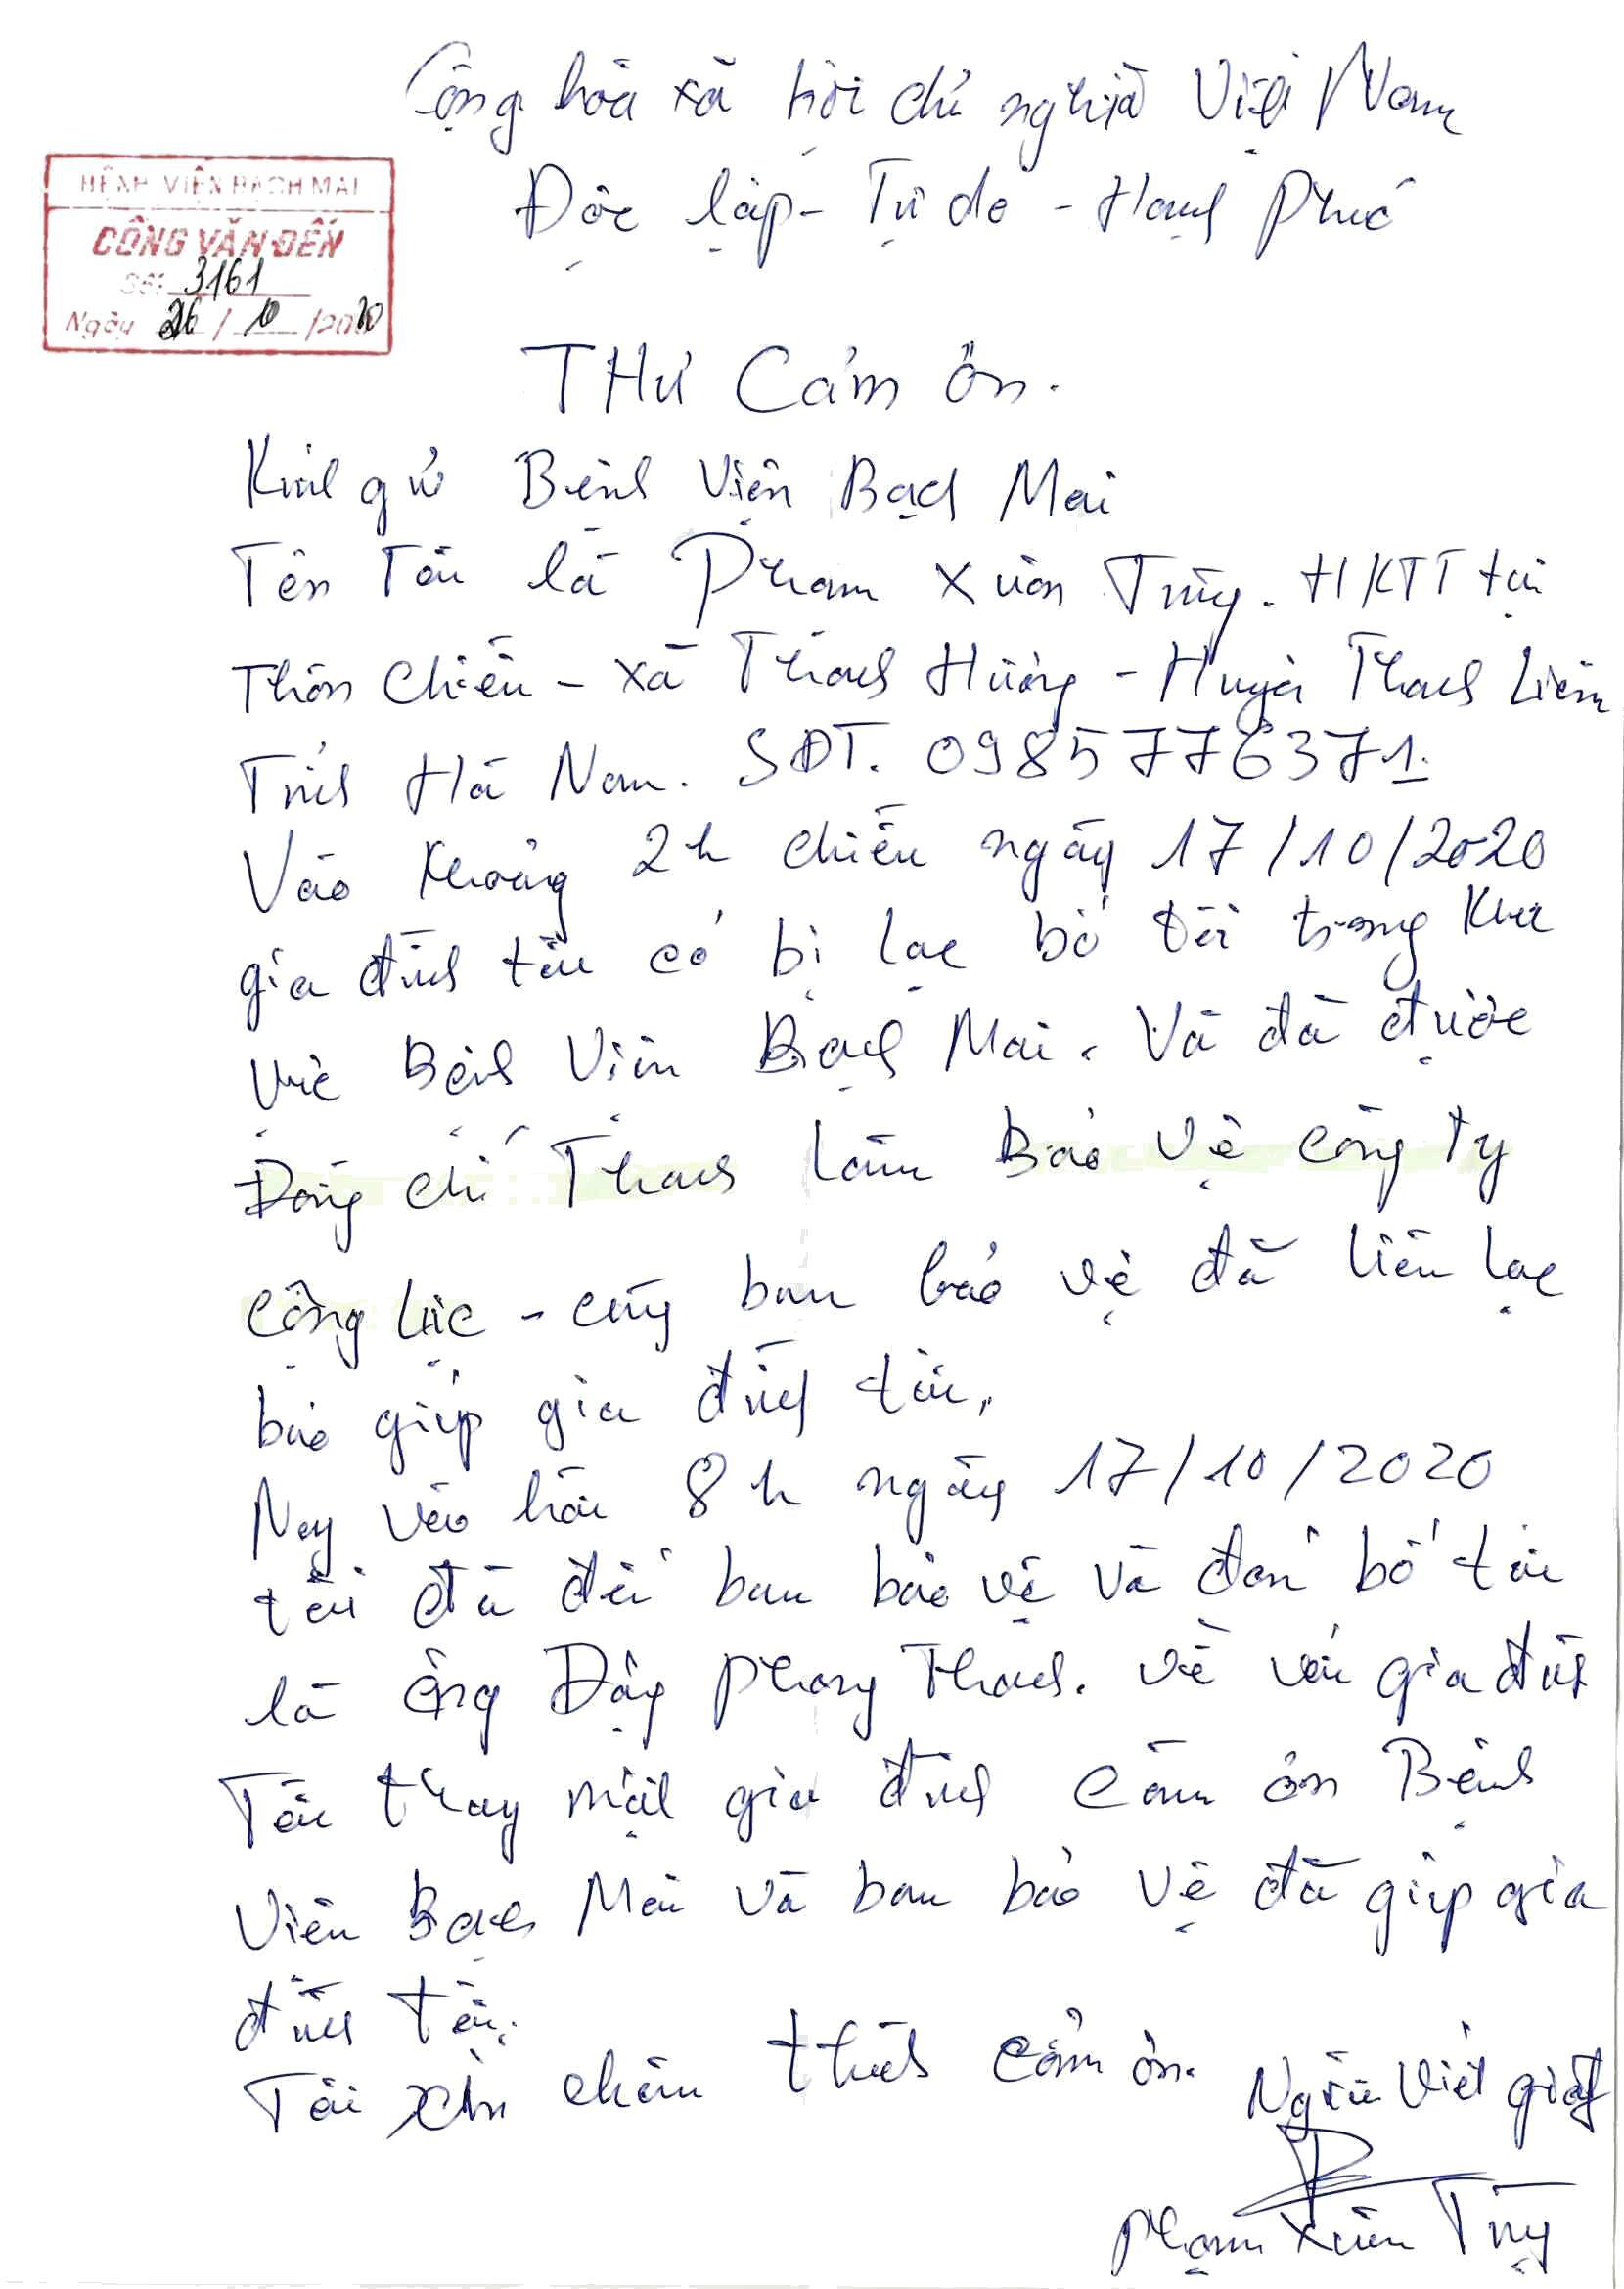 Cộng hòa xã hội chủ nghĩa Việt Nam
Độc lập - Tự do - Hạnh Phúc
BỆNH VIỆN BẠCH MAI
CÔNG VĂN ĐẾN
Số: 3161
Ngày 26 / 10 /2020
THư Cảm Ơn.
Kính gửi Bệnh Viện Bạch Mai
Tên Tôi là Phạm Xuân HKTT tại
Thôn - xã Hương - Huyện Thanh Liêm
Tỉnh Hà Nam. SĐT. 0985776371.
Vào khoảng 2h chiều ngày 17/10/2020
gia đình tôi có bị lạc bố tôi trong khu
vực Bệnh Viện Bạch Mai. Và đã được
Đồng chí làm Bảo vệ công ty
cộng lực - cùng ban bảo vệ đã liên lạc
báo giúp gia đình tôi.
Nay vào hồi 8h ngày 17/10/2020
tôi đã đến ban bảo vệ và đón bố tôi
là ông Phong về với gia đình
Tôi thay mặt gia đình cảm ơn Bệnh
Viện Bạch Mai và ban bảo vệ đã giúp gia
đình tôi.
Tôi xin chân thành cảm ơn.
Người Viết giấy
Phạm Xuân